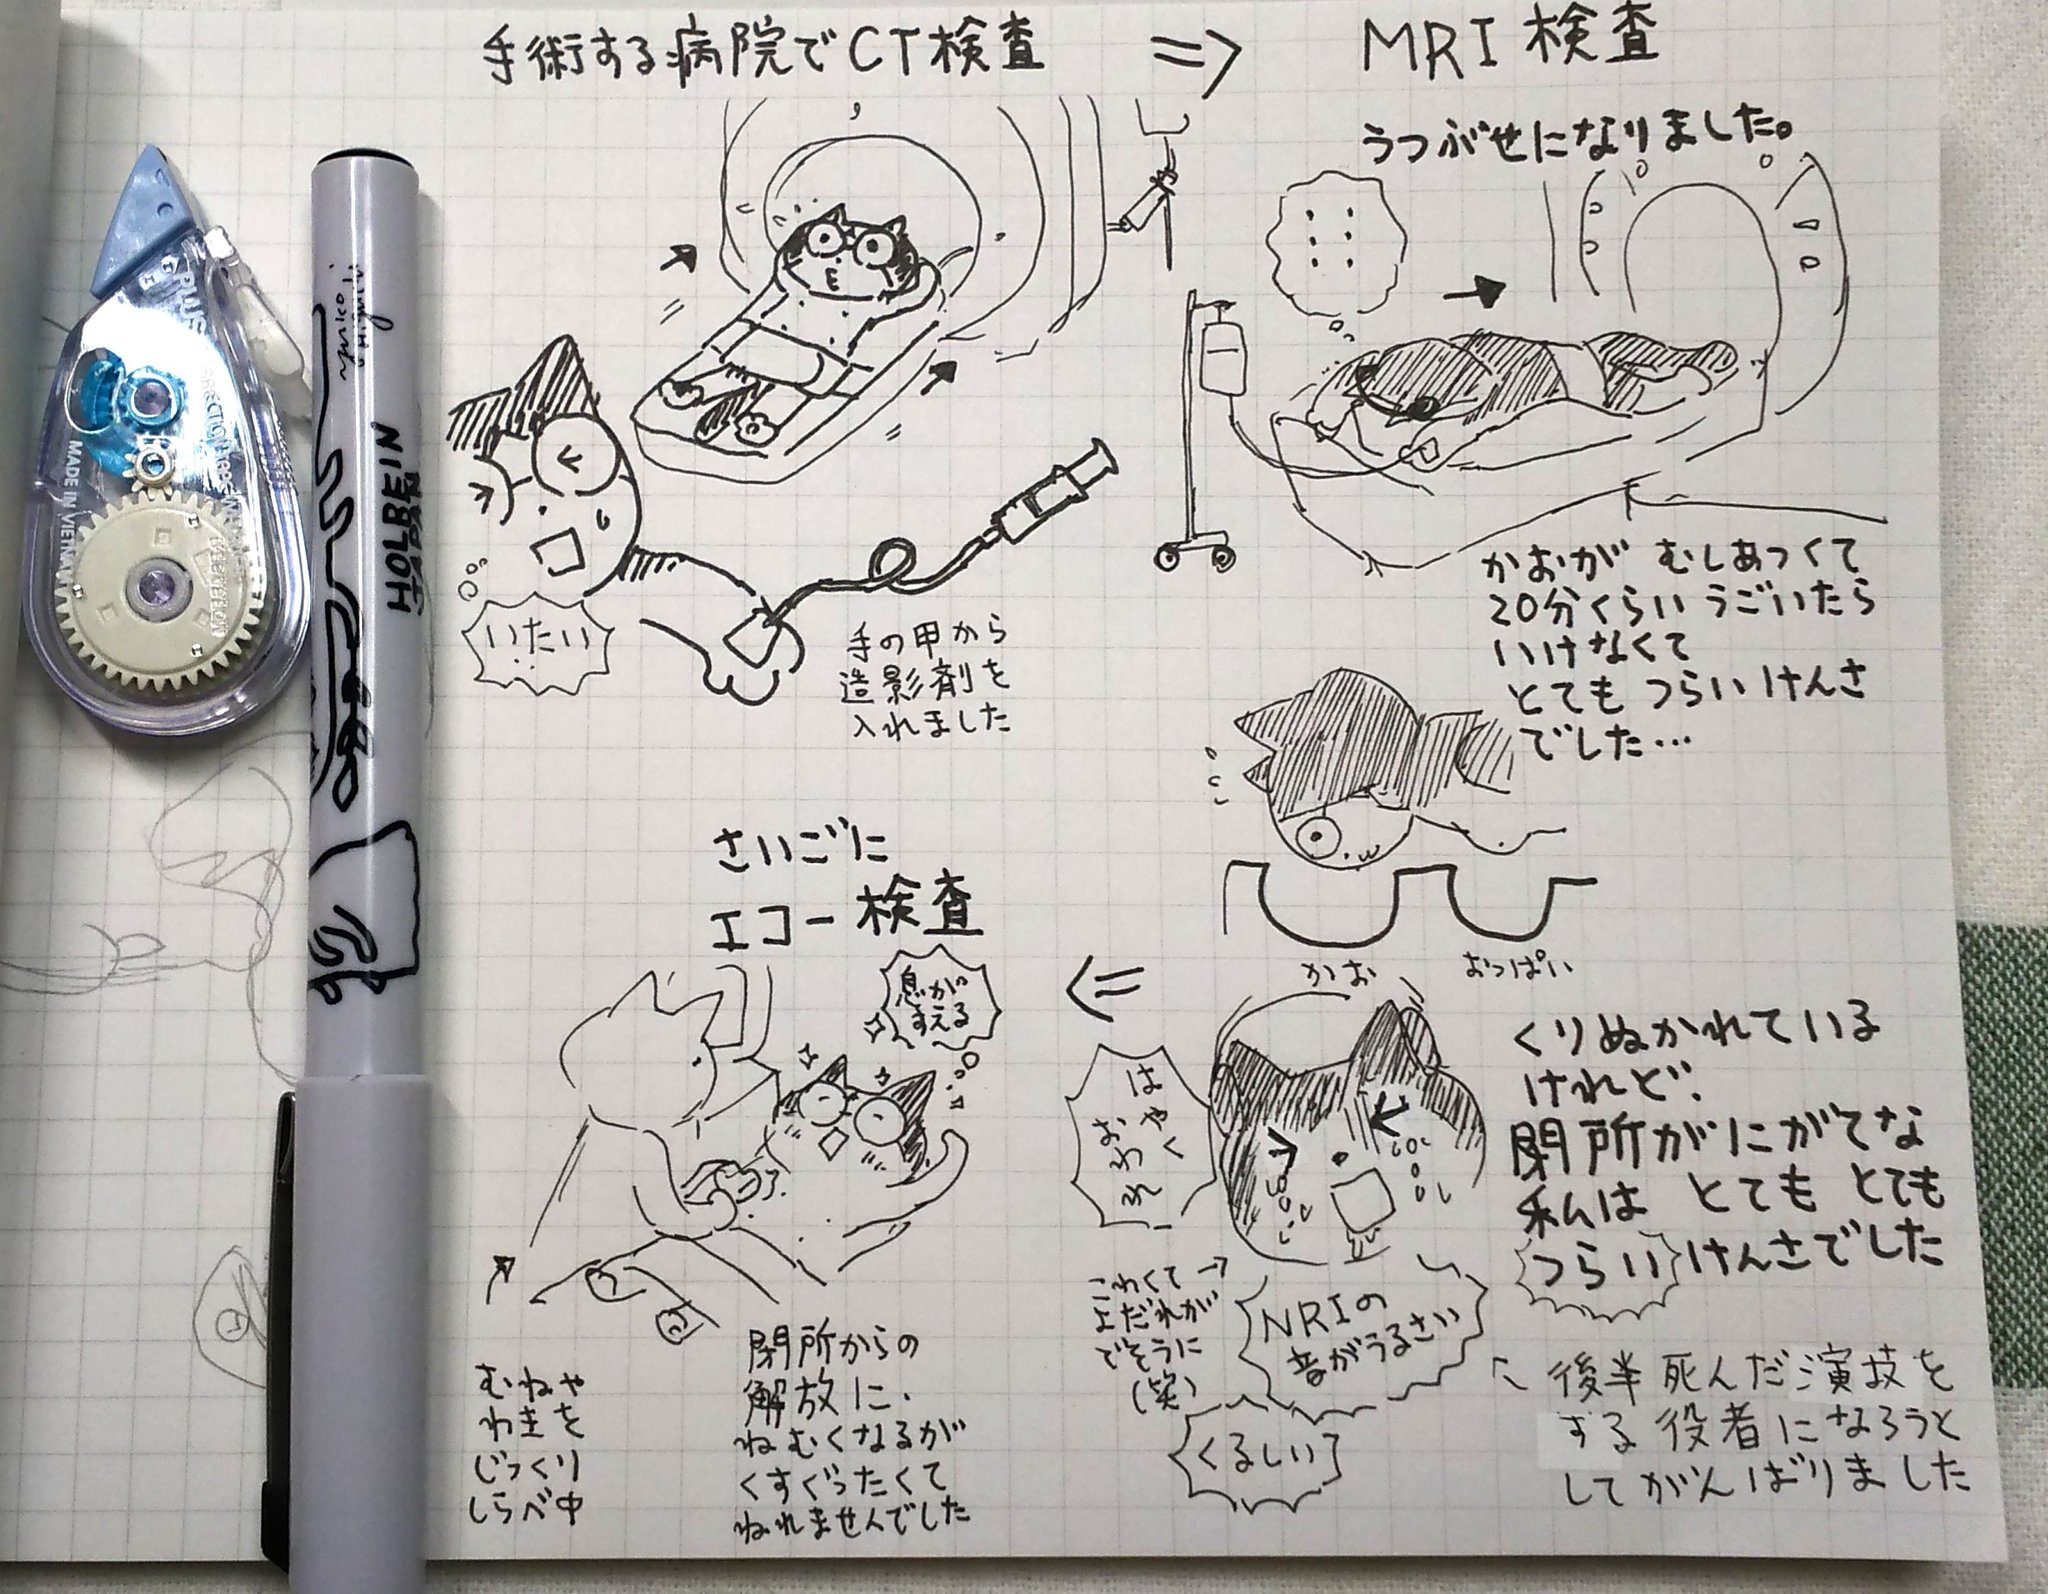 手術する病院でCT検査
=>
MRI検査
うつぶせになりました。
いたい
手の甲から
造影剤を
入れました
かおが むしあつくて
20分くらい うごいたら
いけなくて
とても つらい けんさ
でした…
かお
おっぱい
くりぬかれている
けれど、
閉所がにがてな
私は とても とても
つらい けんさでした
はやく
おわれ
こわくて→
よだれが
でそうに
(笑)
NRIの
音がうるさい
くるしい
後半死んだ演技を
する役者になろうと
してがんばりました
<=
さいごに
エコー検査
息が
すえる
むねや
わきを
じっくり
しらべ中
閉所からの
解放に、
ねむくなるが
くすぐったくて
ねれませんでした
PLUS
MADE IN VIETNAM
HOLBEIN
JAPAN